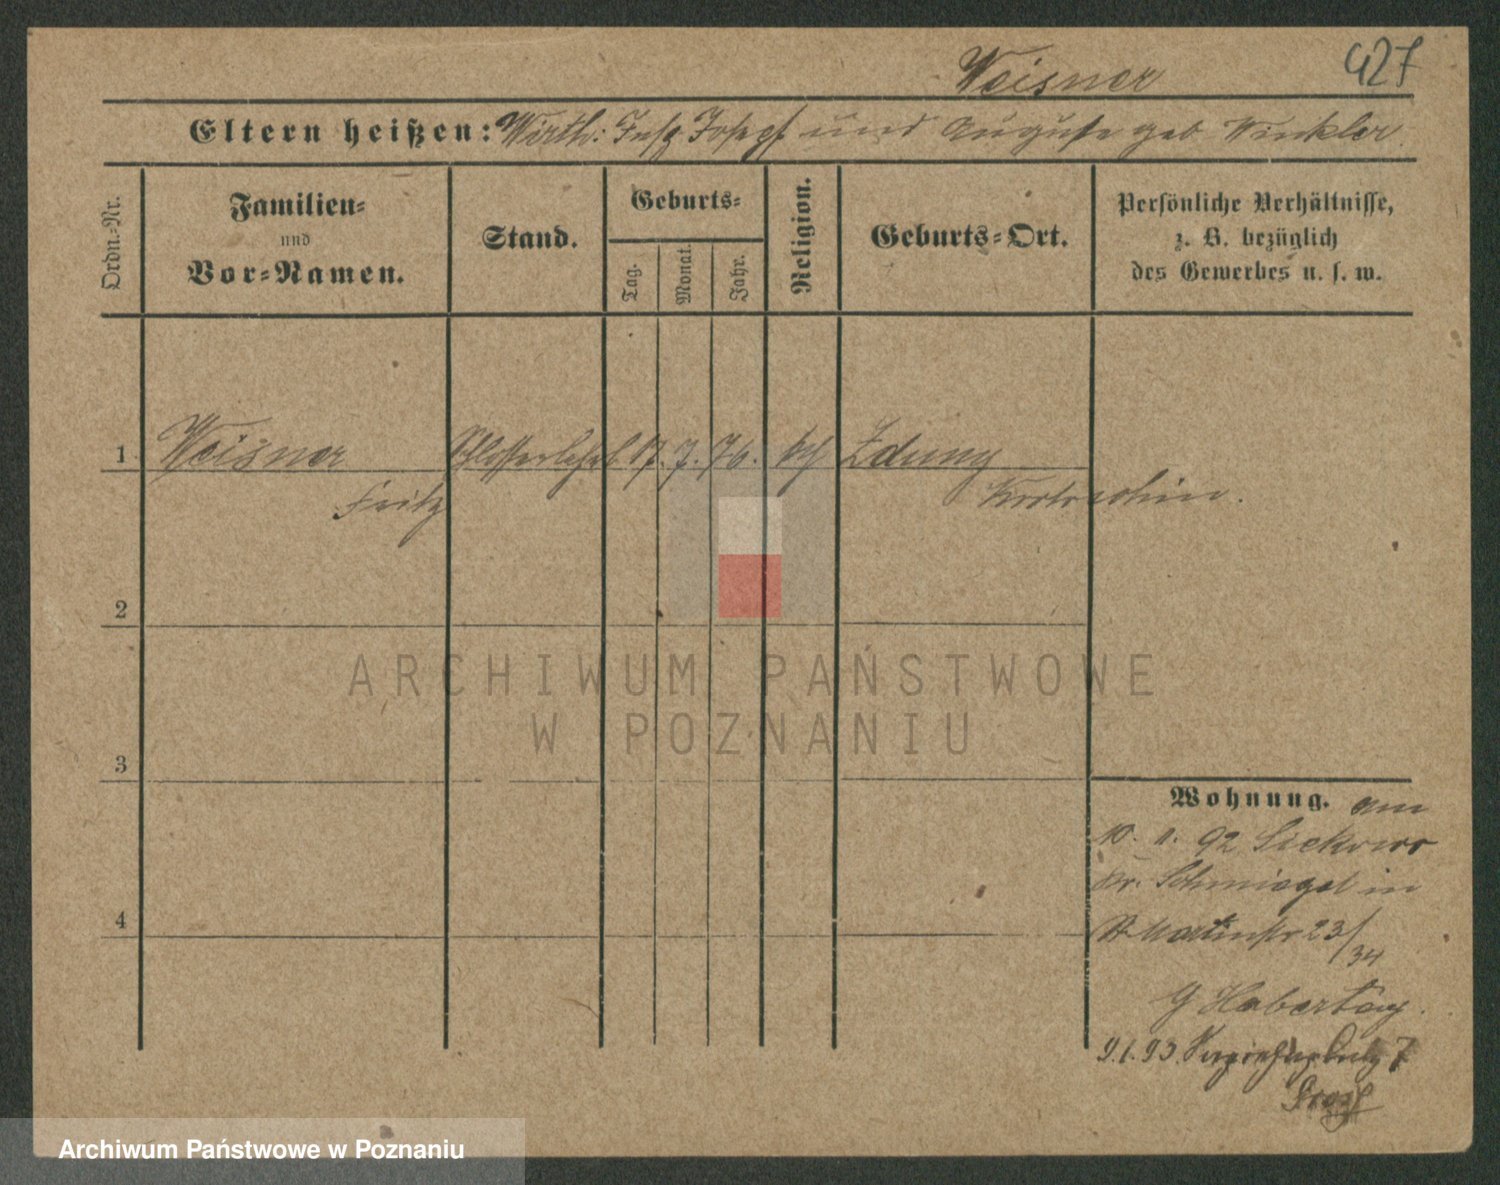 Weisner 427
Eltern heißen: Wirth: Insp Josef und Auguste geb Winkler.
Ordn.-Nr.
Familien-
und
Vor-Namen.
Stand.
Geburts-
Tag.
Monat.
Jahr.
Religion.
Geburts-Ort.
Persönliche Verhältnisse,
z. B. bezüglich
des Gewerbes u. s. w.
1 Weisner Schlosserlehrl. 17. 7. 76. kth Zduny
Fritz Krotoschin.
2
3
4
Wohnung. am
10. 11. 92 Siekowo
Kr. Schmiegel in
St Martinstr 23/
34
Habertag.
9.1.93. 7
ARCHIWUM PAŃSTWOWE
W POZNANIU
Archiwum Państwowe w Poznaniu